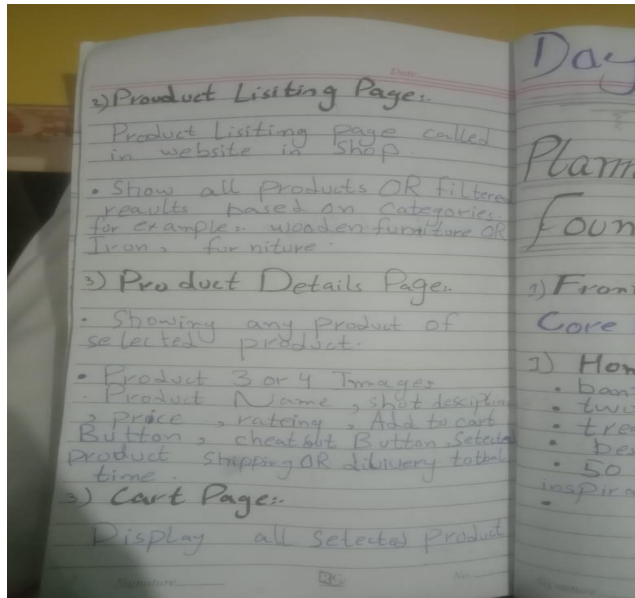 Date
2) Prouduct Lisiting Page:.
Product Lisiting page called
in website in Shop.
• Show all products OR filtere
reaults based on Categories.
for example:. wooden furniture OR
Iron, furniture.
3) Product Details Page:.
• Showing any product of
selected product.
• Product 3 or 4 Images
. Product Name, shot desciption
, price, rateing, Add to cart
Button, cheatbut Button, Selected
product shipping OR dilivery totbal
time.
3) Cart Page:.
Display all selected product
Signature
No.
Day
Plann
Foun
1) Fron
Core
1) Hom
• ban
• two
• tre
• bes
• 50
inspira